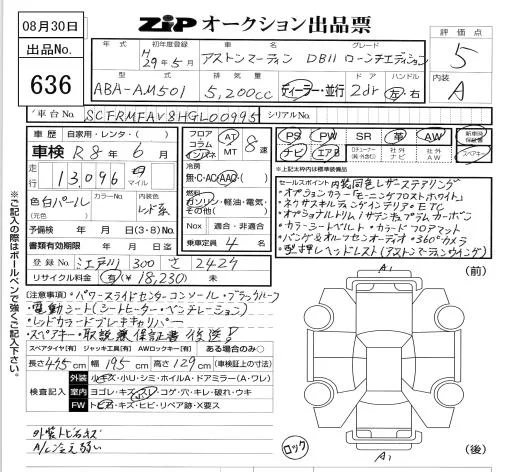 08月30日
ZIP オークション出品票
出品No.
636
年式
初年度登録
車名
グレード
評価点
H29年5月
アストンマーティン DB11 ローンチエディション
5
型式
排気量
ディーラー・並行
ドア
ハンドル
ABA-AM501
5,200cc
2dr
左・右
内装
A
車台No.
SCFRMFAV8HGL00995
シリアルNo.
車歴
自家用・レンタ・( )
車検 R8年6月
走行
13,096
マイル
フロア
コラム
インパネ
AT
MT
8速
PS
PW
SR
革
AW
新車時保証書
ナビ
エアB
社外ナビ
社外AW
スペアキー
冷房
無・C・AC・AAC・( )
※上記太枠内は標準装備品
色
白パール
(元色)
カラーNo.
内装色
レッド系
燃料
ガソリン・軽油・電気・その他( )
予備検 年 月 日(3・8)No.
Nox
適合・非適合
書類有効期限 年 月 日
乗車定員
4名
登録No.
江戸川 300 さ 2424
リサイクル料金
有(¥18,230)
未
セールスポイント
内装同色レザーステアリング
・オプションカラー「モーニングフロストホワイト」
・ETC
・カラーシートベルト・カラードフロアマット
・バング&オルフセンオーディオ・360°カメラ
・型押しヘッドレスト(アストンマーティンウイング)
(注意事項)
・パワースライドセンターコンソール・ブラックルーフ
・電動シート(シートヒーター・ベンチレーション)
・レッドカラードブレーキキャリパー
・スペアキー・取説・保証書後送!
スペアタイヤ[有] ジャッキ工具[有] AWロックキー[有] ある場合のみ○
長さ475cm 幅195cm 高さ129cm (車検証上の寸法)
検査記入
外装 小キズ・小U・シミ・ホイルA・ドアミラー(A・ワレ)
室内 ヨゴレ・キズ・スレ・コゲ・穴・キレ・破れ・ウキ
FW トビ石・キズ・ヒビ・リペア跡・X要ス
外装トビ石キズ
A/C冷え弱い
A1
(前)
ロック
A1
(後)
※ご記入の際はボールペンで強くご記入下さい。